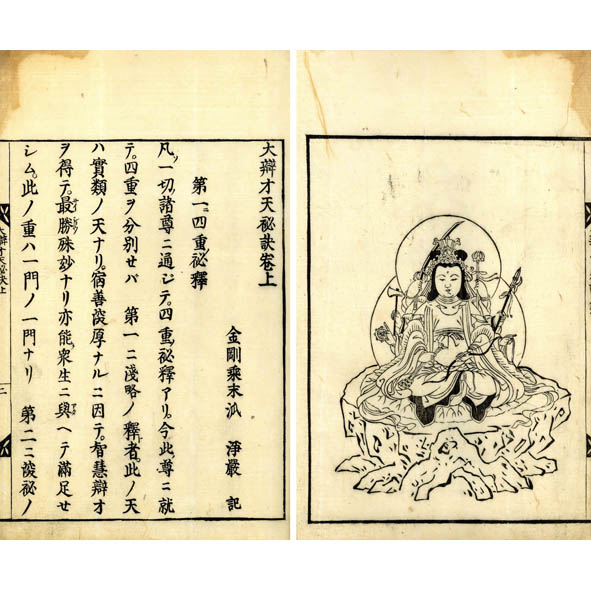 大辯才天祕訣卷上
金剛乘末派 淨嚴 記
第一ニ四重祕釋
凡ソ一切ノ諸尊ニ通ジテ。四重ノ祕釋アリ。今此尊ニ就
テ。四重ヲ分別セバ 第一ニ淺略ノ釋者。此ノ天
ハ實類ノ天ナリ。宿善深厚ナルニ因テ。智慧辯才
ヲ得テ。最勝殊妙ナリ亦能ク衆生ニ與ヘテ滿足セ
シム。此ノ重ハ一門ノ一門ナリ 第二ニ深祕ノ
大辯才天祕訣上
二